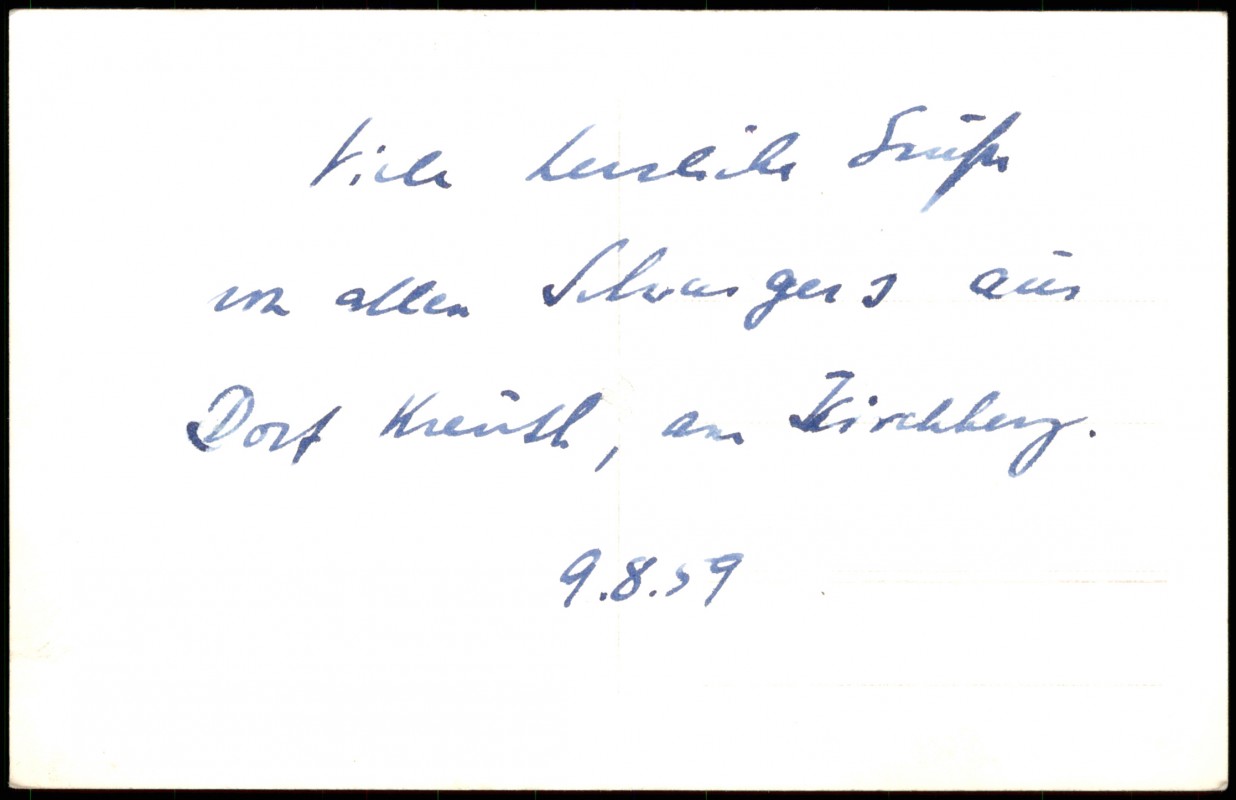 Viele herzliche Grüße
von allen Schwaigers aus
Dorf Kreuth, am Kirchberg.
9.8.59